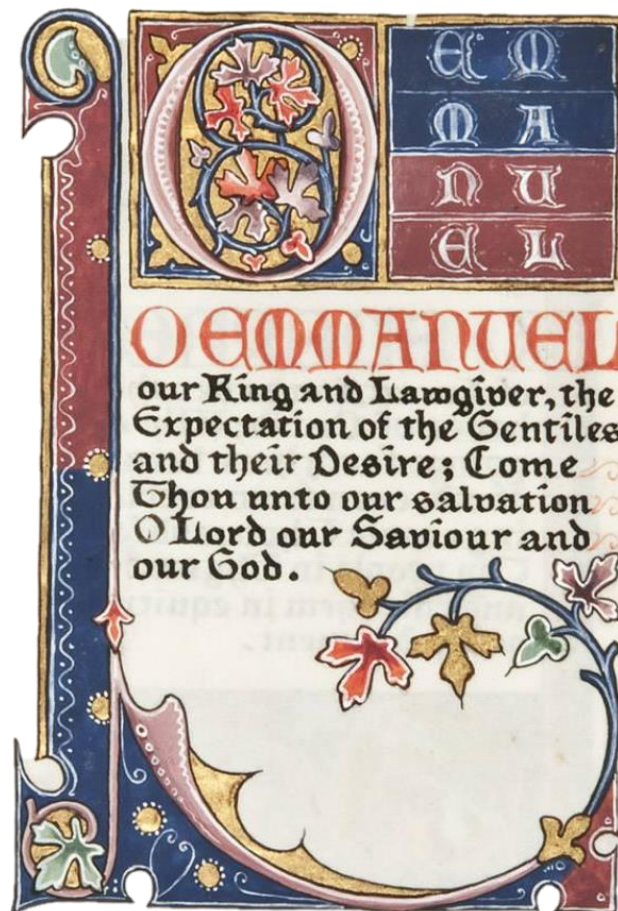 EM
MA
NU
EL
O EMMANUEL
our King and Lawgiver, the
Expectation of the Gentiles
and their Desire; Come
Thou unto our salvation
O Lord our Saviour and
our God.